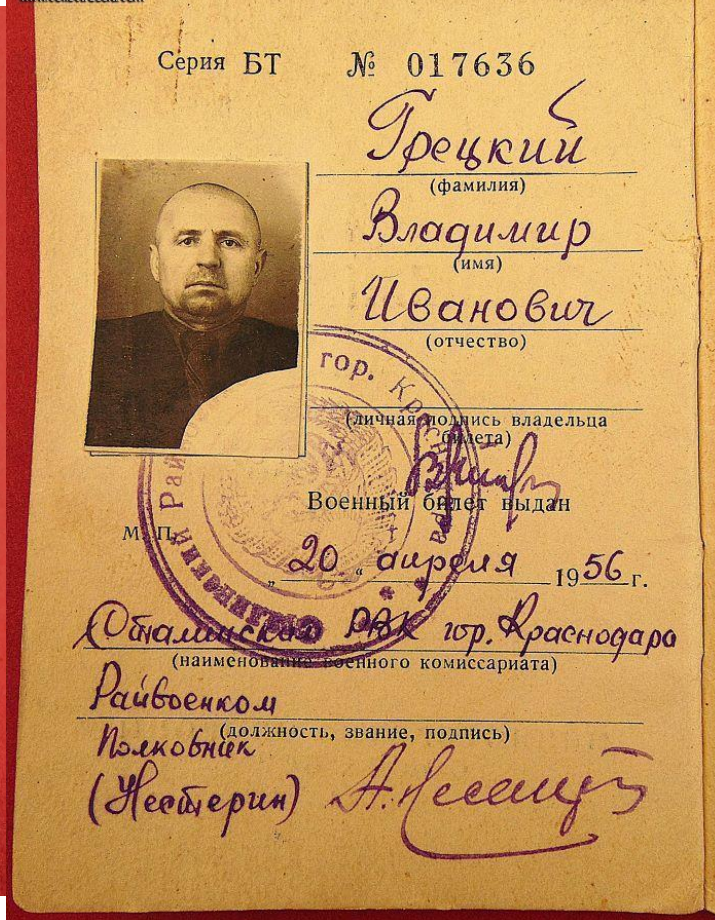 Серия БТ № 017636
Грецкий
(фамилия)
Владимир
(имя)
Иванович
(отчество)
(личная подпись владельца
билета)
Военный билет выдан
М. П.
„ 20 “ апреля 1956 г.
Сталинский РВК гор. Краснодара
(наименование военного комиссариата)
Райвоенком
(должность, звание, подпись)
Полковник
(Нестерин)